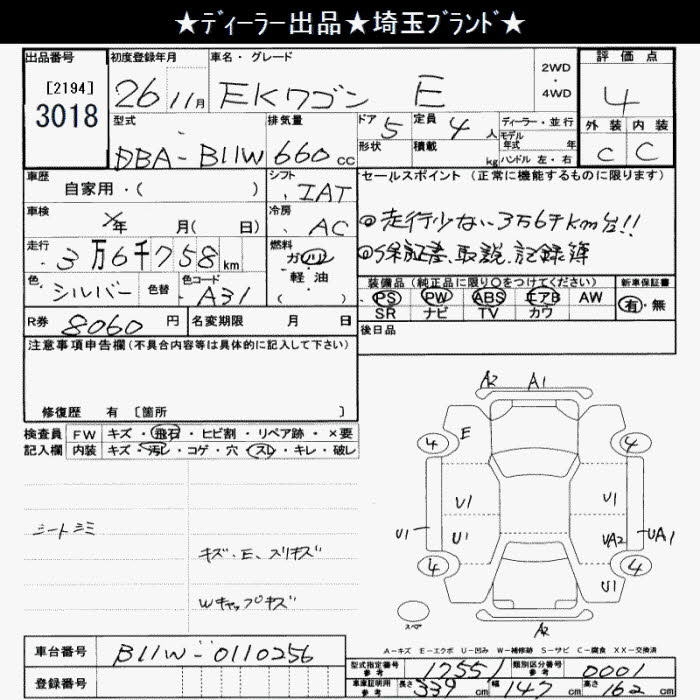 ★ディーラー出品★埼玉ブランド★
出品番号 初度登録年月 車名・グレード 2WD ・ 4WD 評価点
[2194] 3018 26 11月 EKワゴン E 4
型式 排気量 ドア 5 定員 4人 ディーラー・並行 外装 内装
DBA-B11W 660cc 形状 積載 kg モデル年式 年 ハンドル 左・右 C C
車歴 自家用・( ) シフト IAT セールスポイント (正常に機能するものに限ります)
車検 年 月(日) 冷房 AC ◎走行少ない3万6千km台!!
走行 3万6千758km 燃料 ガソリン ・ 軽油 ( ) ◎保証書、取説、記録簿
色 シルバー 色替 色コード A31 装備品 (純正品に限り○をつけてください) 新車保証書
PS PW ABS エアB AW 有・無
SR ナビ TV カワ
R券 8060円 名変期限 月 日 後日品
注意事項申告欄 (不具合内容等は具体的に記入して下さい)
修復歴 有 [箇所 ]
検査員 FW キズ・飛石・ヒビ割・リペア跡・×要
記入欄 内装 キズ・汚レ・コゲ・穴・スレ・キレ・破レ
シートシミ
キズ・E、スリキズ
Wキャップキズ
A2 A1
4 E 4
U1 U1
U1 U1 UA2 UA1
4 U1 4
スペア A2
A-キズ E-エクボ U-凹み W-補修跡 S-サビ C-腐食 XX-交換済
車台番号 B11W-0110256 型式指定番号 参考 17551 類別区分番号 参考 0001
登録番号 車庫証明用 参考 長さ 339cm 幅 147cm 高さ 162cm